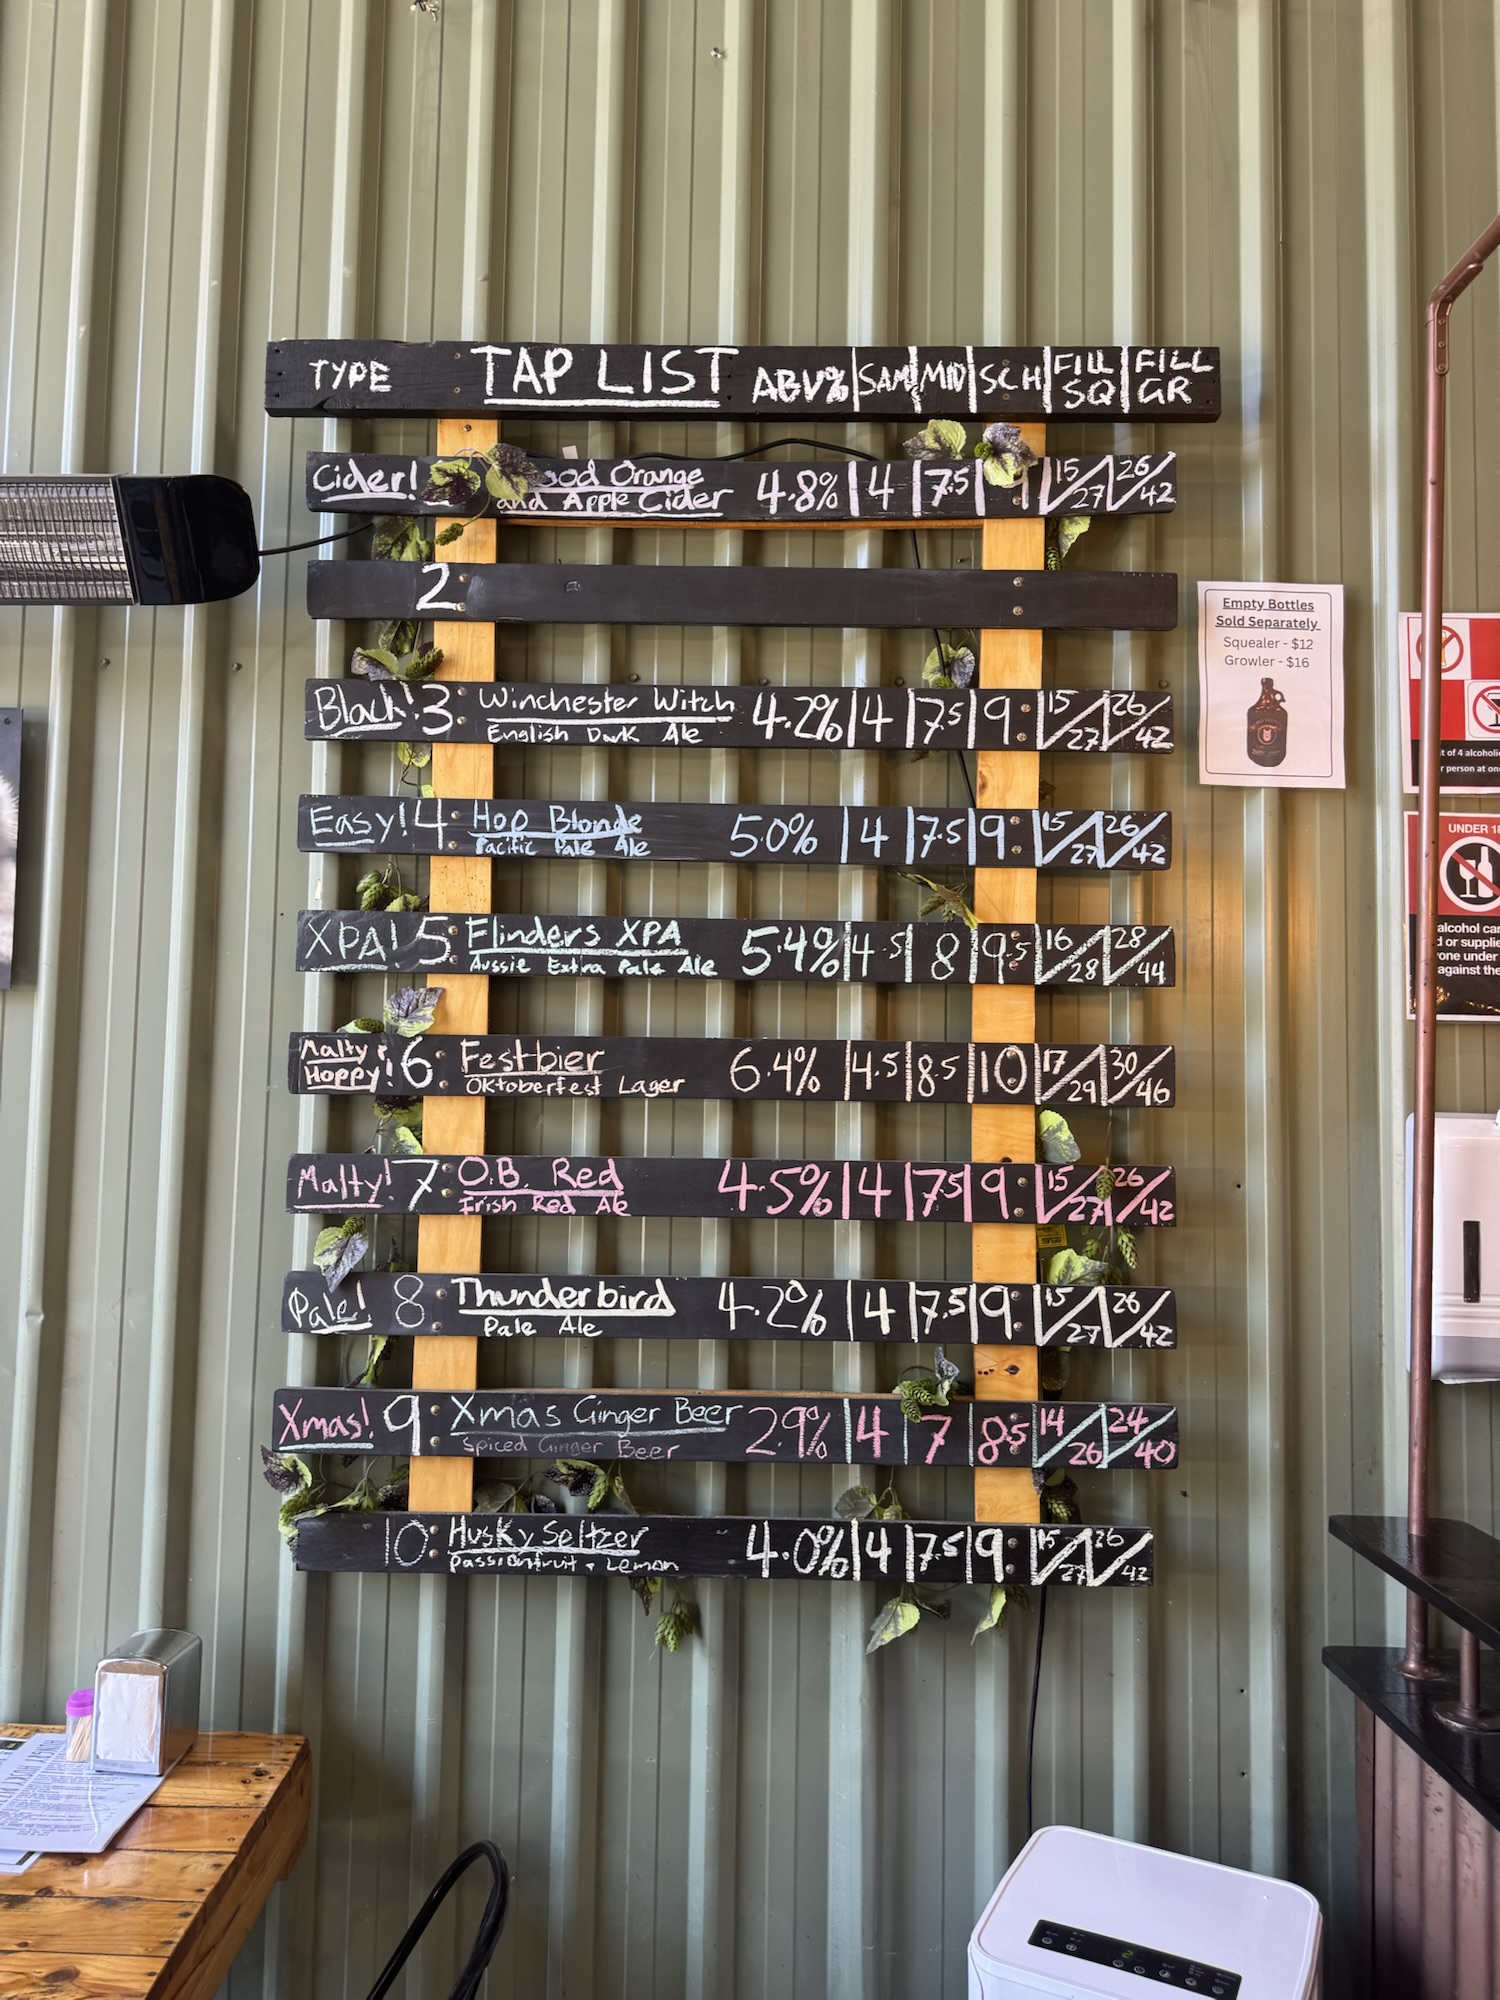 TYPE TAP LIST ABV% SAM MID SCH FILL SQ FILL GR
Cider! Orange 4.8% 4 7.5 9 15/27 26/42
and Apple Cider
2
Black! 3 Winchester Witch 4.2% 4 7.5 9 15/27 26/42
English Dark Ale
Easy! 4 Hop Blonde 5.0% 4 7.5 9 15/27 26/42
Pacific Pale Ale
XPA! 5 Flinders XPA 5.4% 4.5 8 9.5 16/28 28/44
Aussie Extra Pale Ale
Malty & Hoppy! 6 Festbier 6.4% 4.5 8.5 10 17/29 30/46
Oktoberfest Lager
Malty! 7 O.B. Red 4.5% 4 7.5 9 15/27 26/42
Irish Red Ale
Pale! 8 Thunderbird 4.2% 4 7.5 9 15/27 26/42
Pale Ale
Xmas! 9 Xmas Ginger Beer 2.9% 4 7 8.5 14/26 24/40
Spiced Ginger Beer
10 Husky Seltzer 4.0% 4 7.5 9 15/27 26/42
Passionfruit + Lemon
Empty Bottles
Sold Separately
Squealer - $12
Growler - $16
t of 4 alcoholi
r person at on
UNDER 18
alcohol can
d or supplie
one under
against the